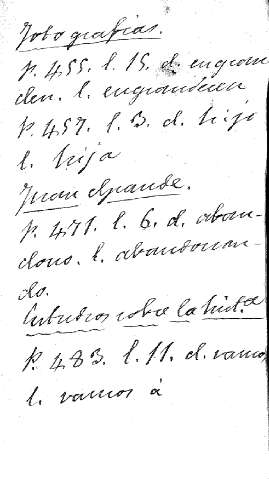 Fotografias.
P. 455. l. 15. d. engran
den. l. engrandecen
P. 457. l. 3. d. hijo
l. hija
Juan Grande.
P. 471. l. 6. d. aban-
dono. l. abandonan-
do.
Estudios sobre la hist.ª
P. 483. l. 11. d. vamos
l. vamos á